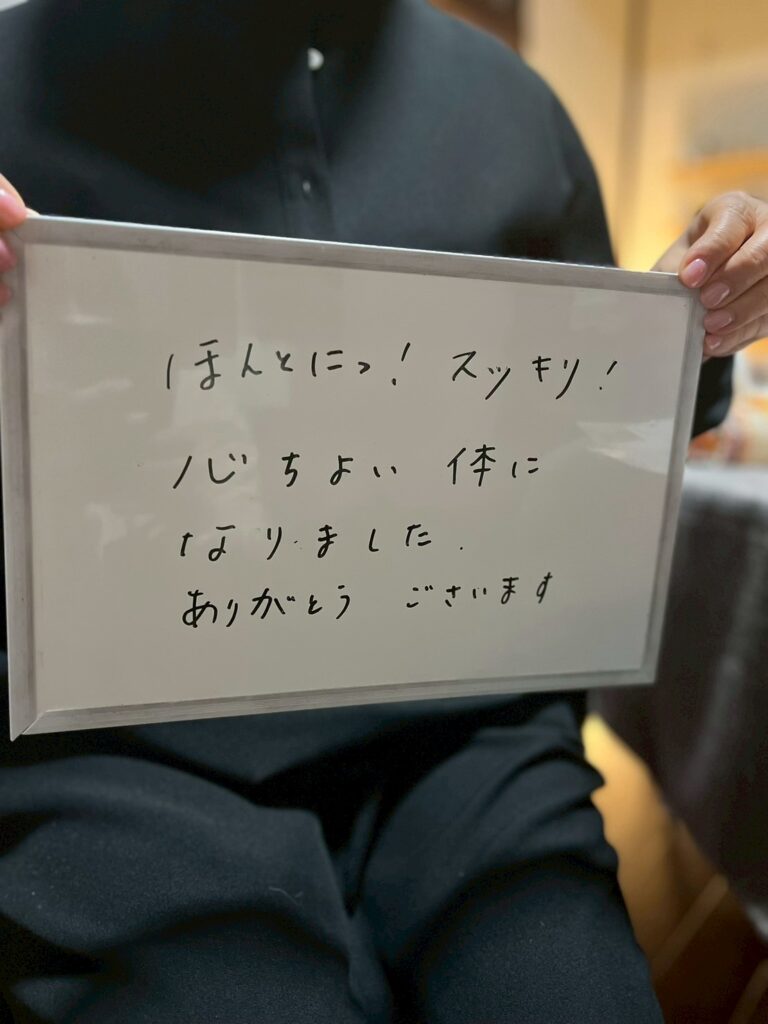 ほんとにっ! スッキリ!
心ちよい 体に
なりました.
ありがとう ございます